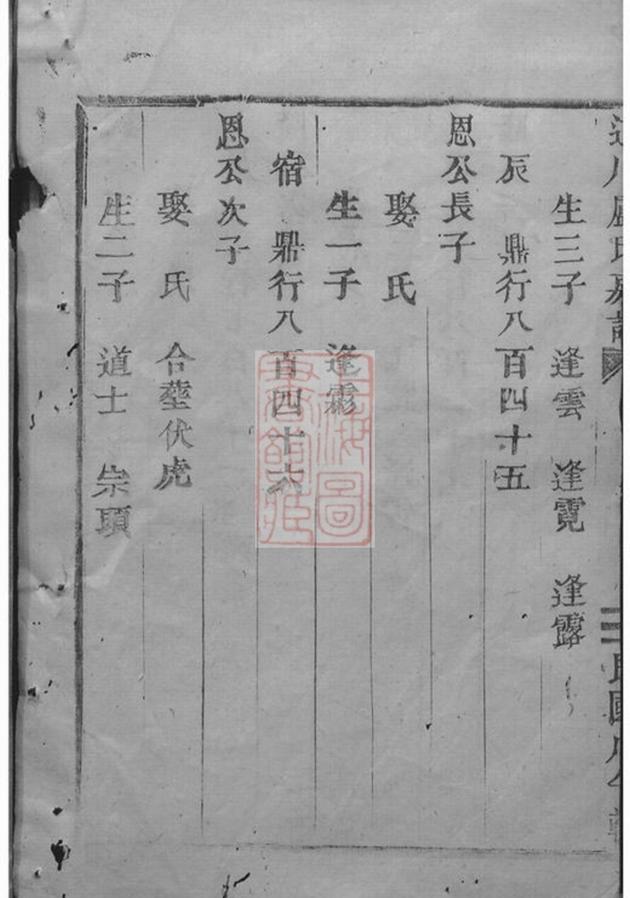 生三子　逢雲　逢霓　逢露
辰　鼎行八百四十五
恩公長子
娶　氏
生一子　逢
宿　鼎行八百四十六
恩公次子
娶　氏　合塟伏虎
生二子　道士　崇頊
上海圖書館藏